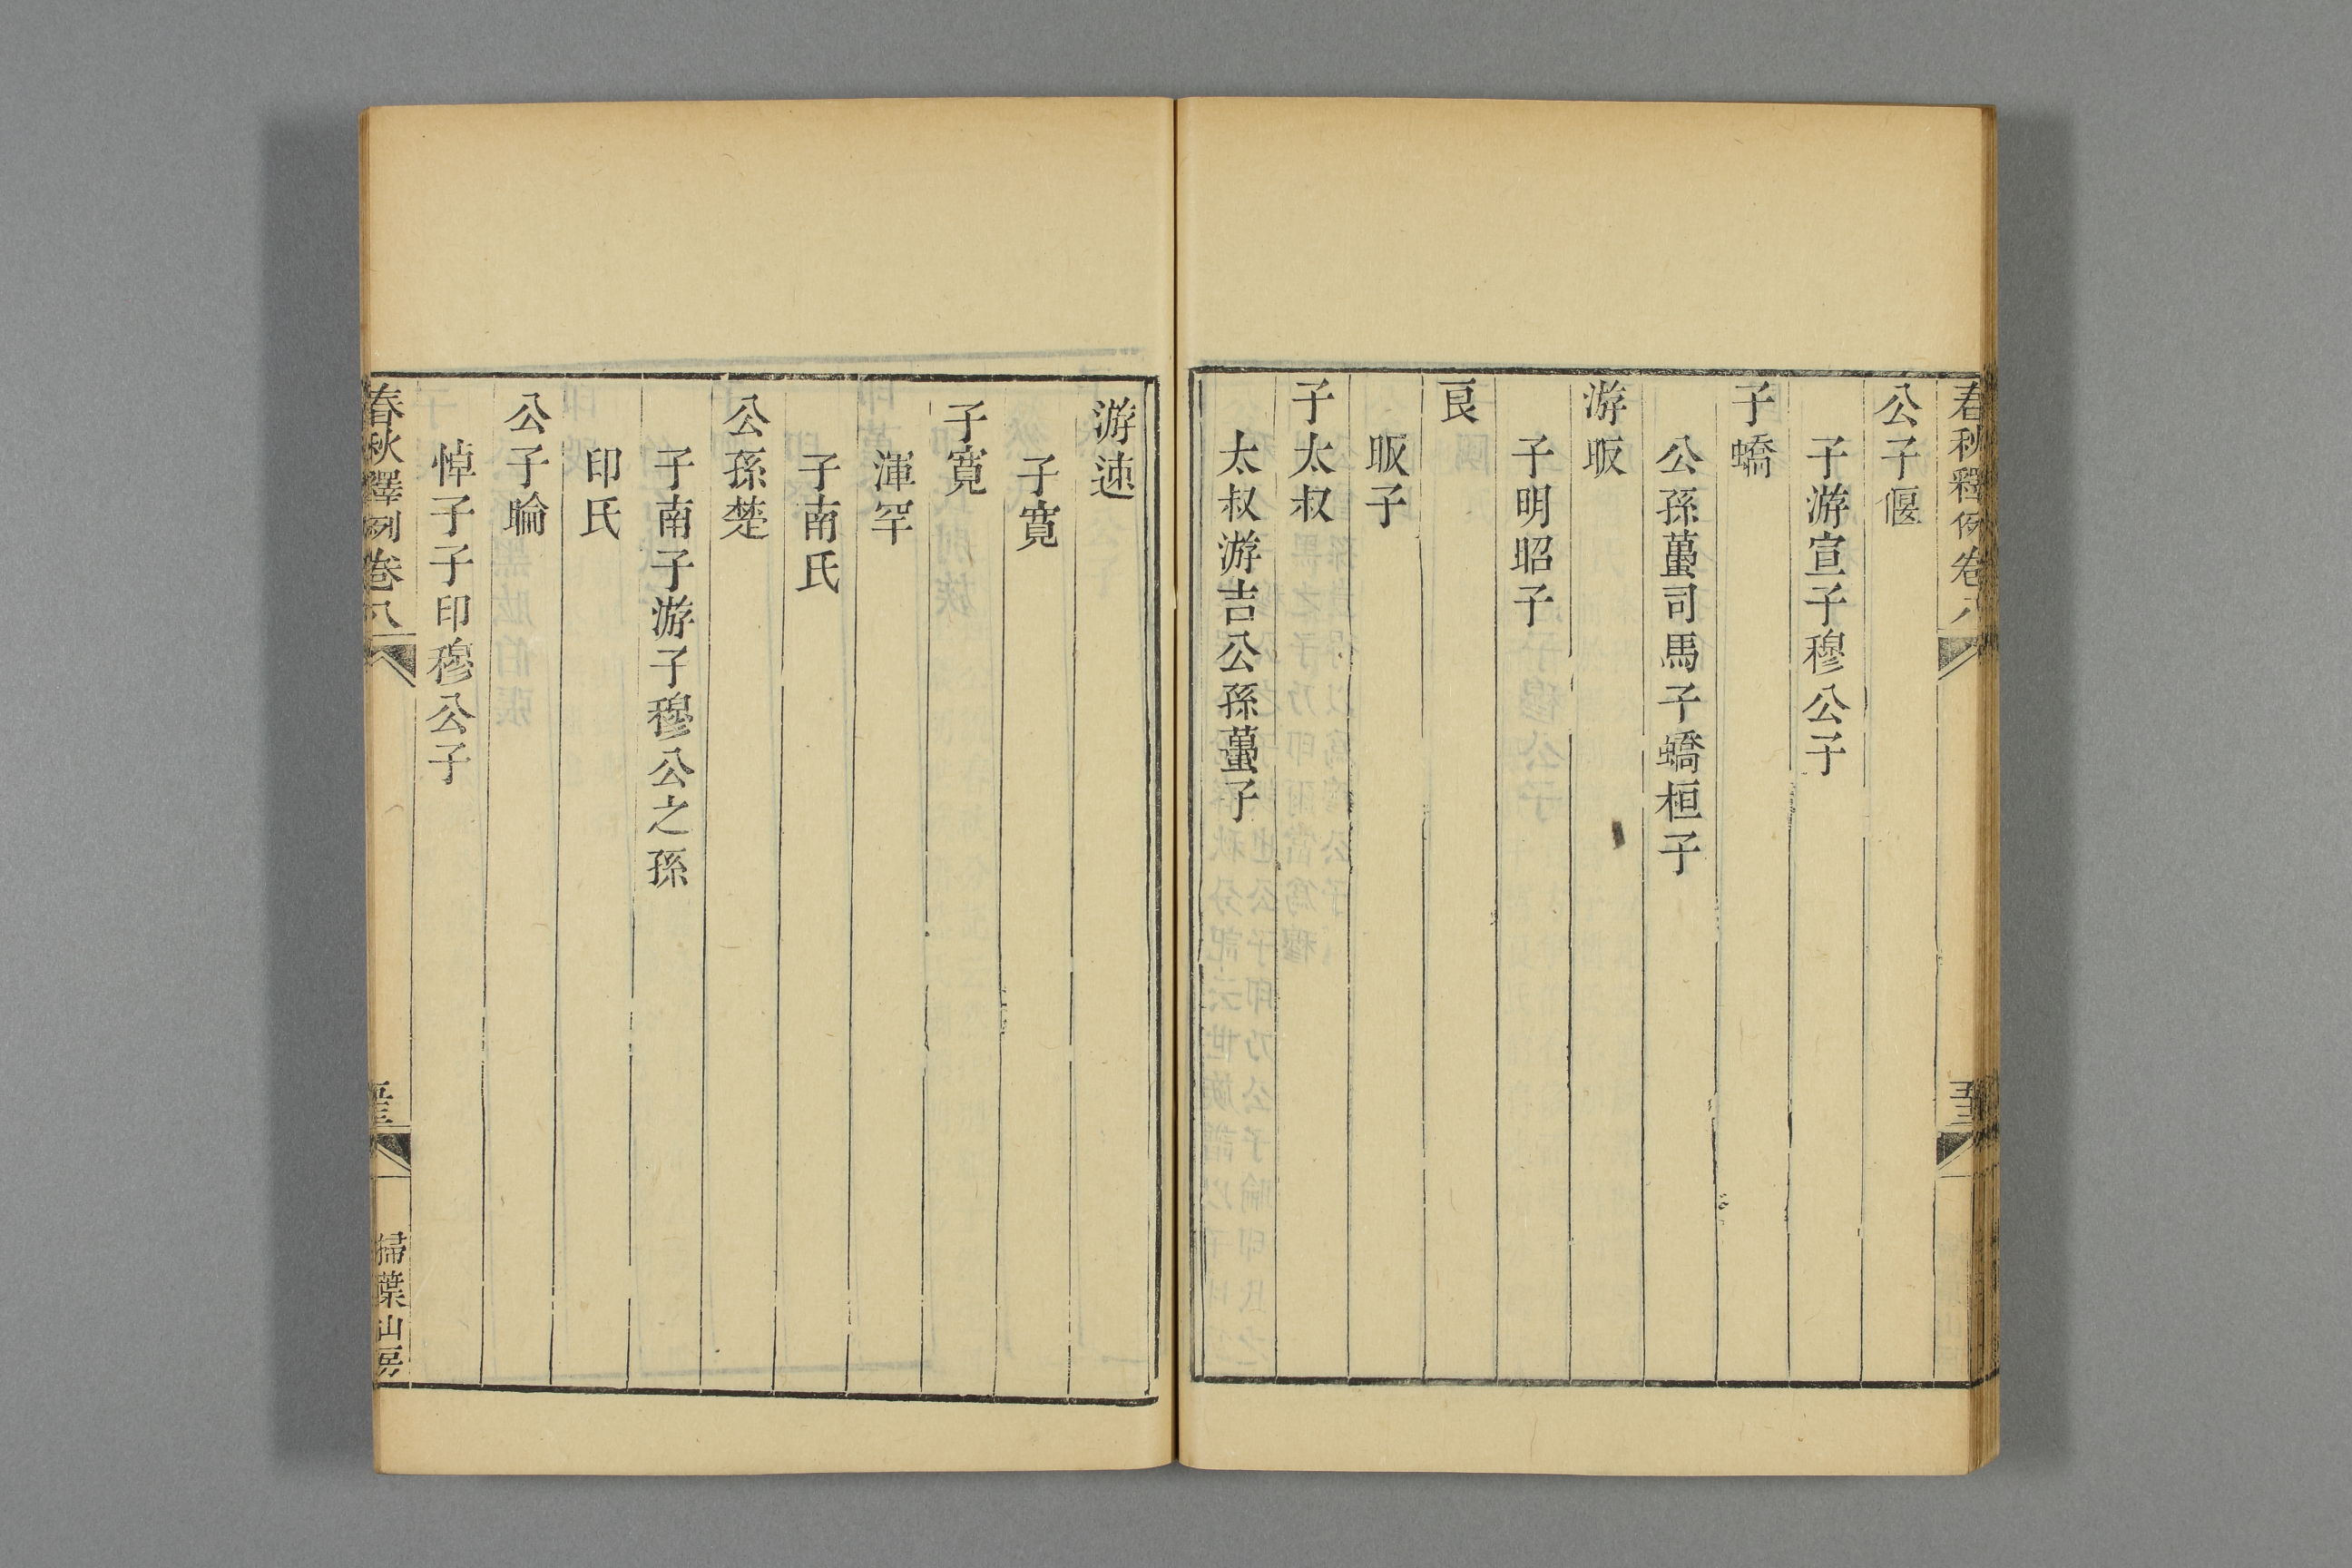 春秋釋例卷八
公子偃
子游宣子穆公子
子蟜
公孫蠆司馬子蟜桓子
游昄
子明昭子
良
昄子
子太叔
太叔游吉公孫蠆子
游速
子寬
子寬
渾罕
子南氏
公孫楚
子南子游子穆公之孫
印氏
公子睔
悼子子印穆公子
春秋釋例卷八
掃葉山房